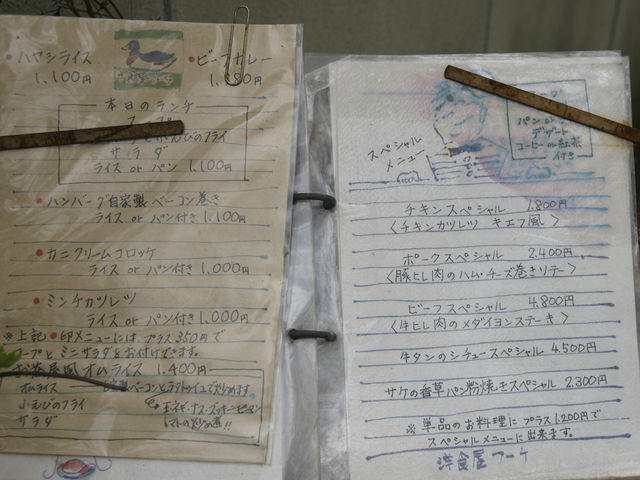 ハヤシライス
1,100円
ビーフカレー
本日のランチ
スープ
えびのフライ
サラダ
ライス or パン 1,100円
ハンバーグ自家製ベーコン巻き
ライス or パン付き 1,100円
カニクリームコロッケ
ライス or パン付き 1,000円
ミンチカツレツ
ライス or パン付き 1,000円
※上記●印メニューには プラス350円で
スープとミニサラダをお付けできます。
風オムライス 1,400円
オムライス
自家製ベーコンとラタトゥイユで炒めます
小えびのフライ
玉ネギ・ナス・ズッキーニ・ピーマン
サラダ
トマトの炒め煮!!
スープ
パン or
デザート
コーヒー or 紅茶
付き
スペシャル
メニュー
チキンスペシャル 1,800円
〈チキンカツレツ キエフ風〉
ポークスペシャル 2,400円
〈豚ヒレ肉のハム・チーズ巻きソテー〉
ビーフスペシャル 4,800円
〈牛ヒレ肉のメダイヨンステーキ〉
牛タンのシチュースペシャル 4,500円
サケの香草パン粉焼きスペシャル 2,300円
※単品のお料理に プラス1,200円で
スペシャルメニューに出来ます。
洋食屋アーケ